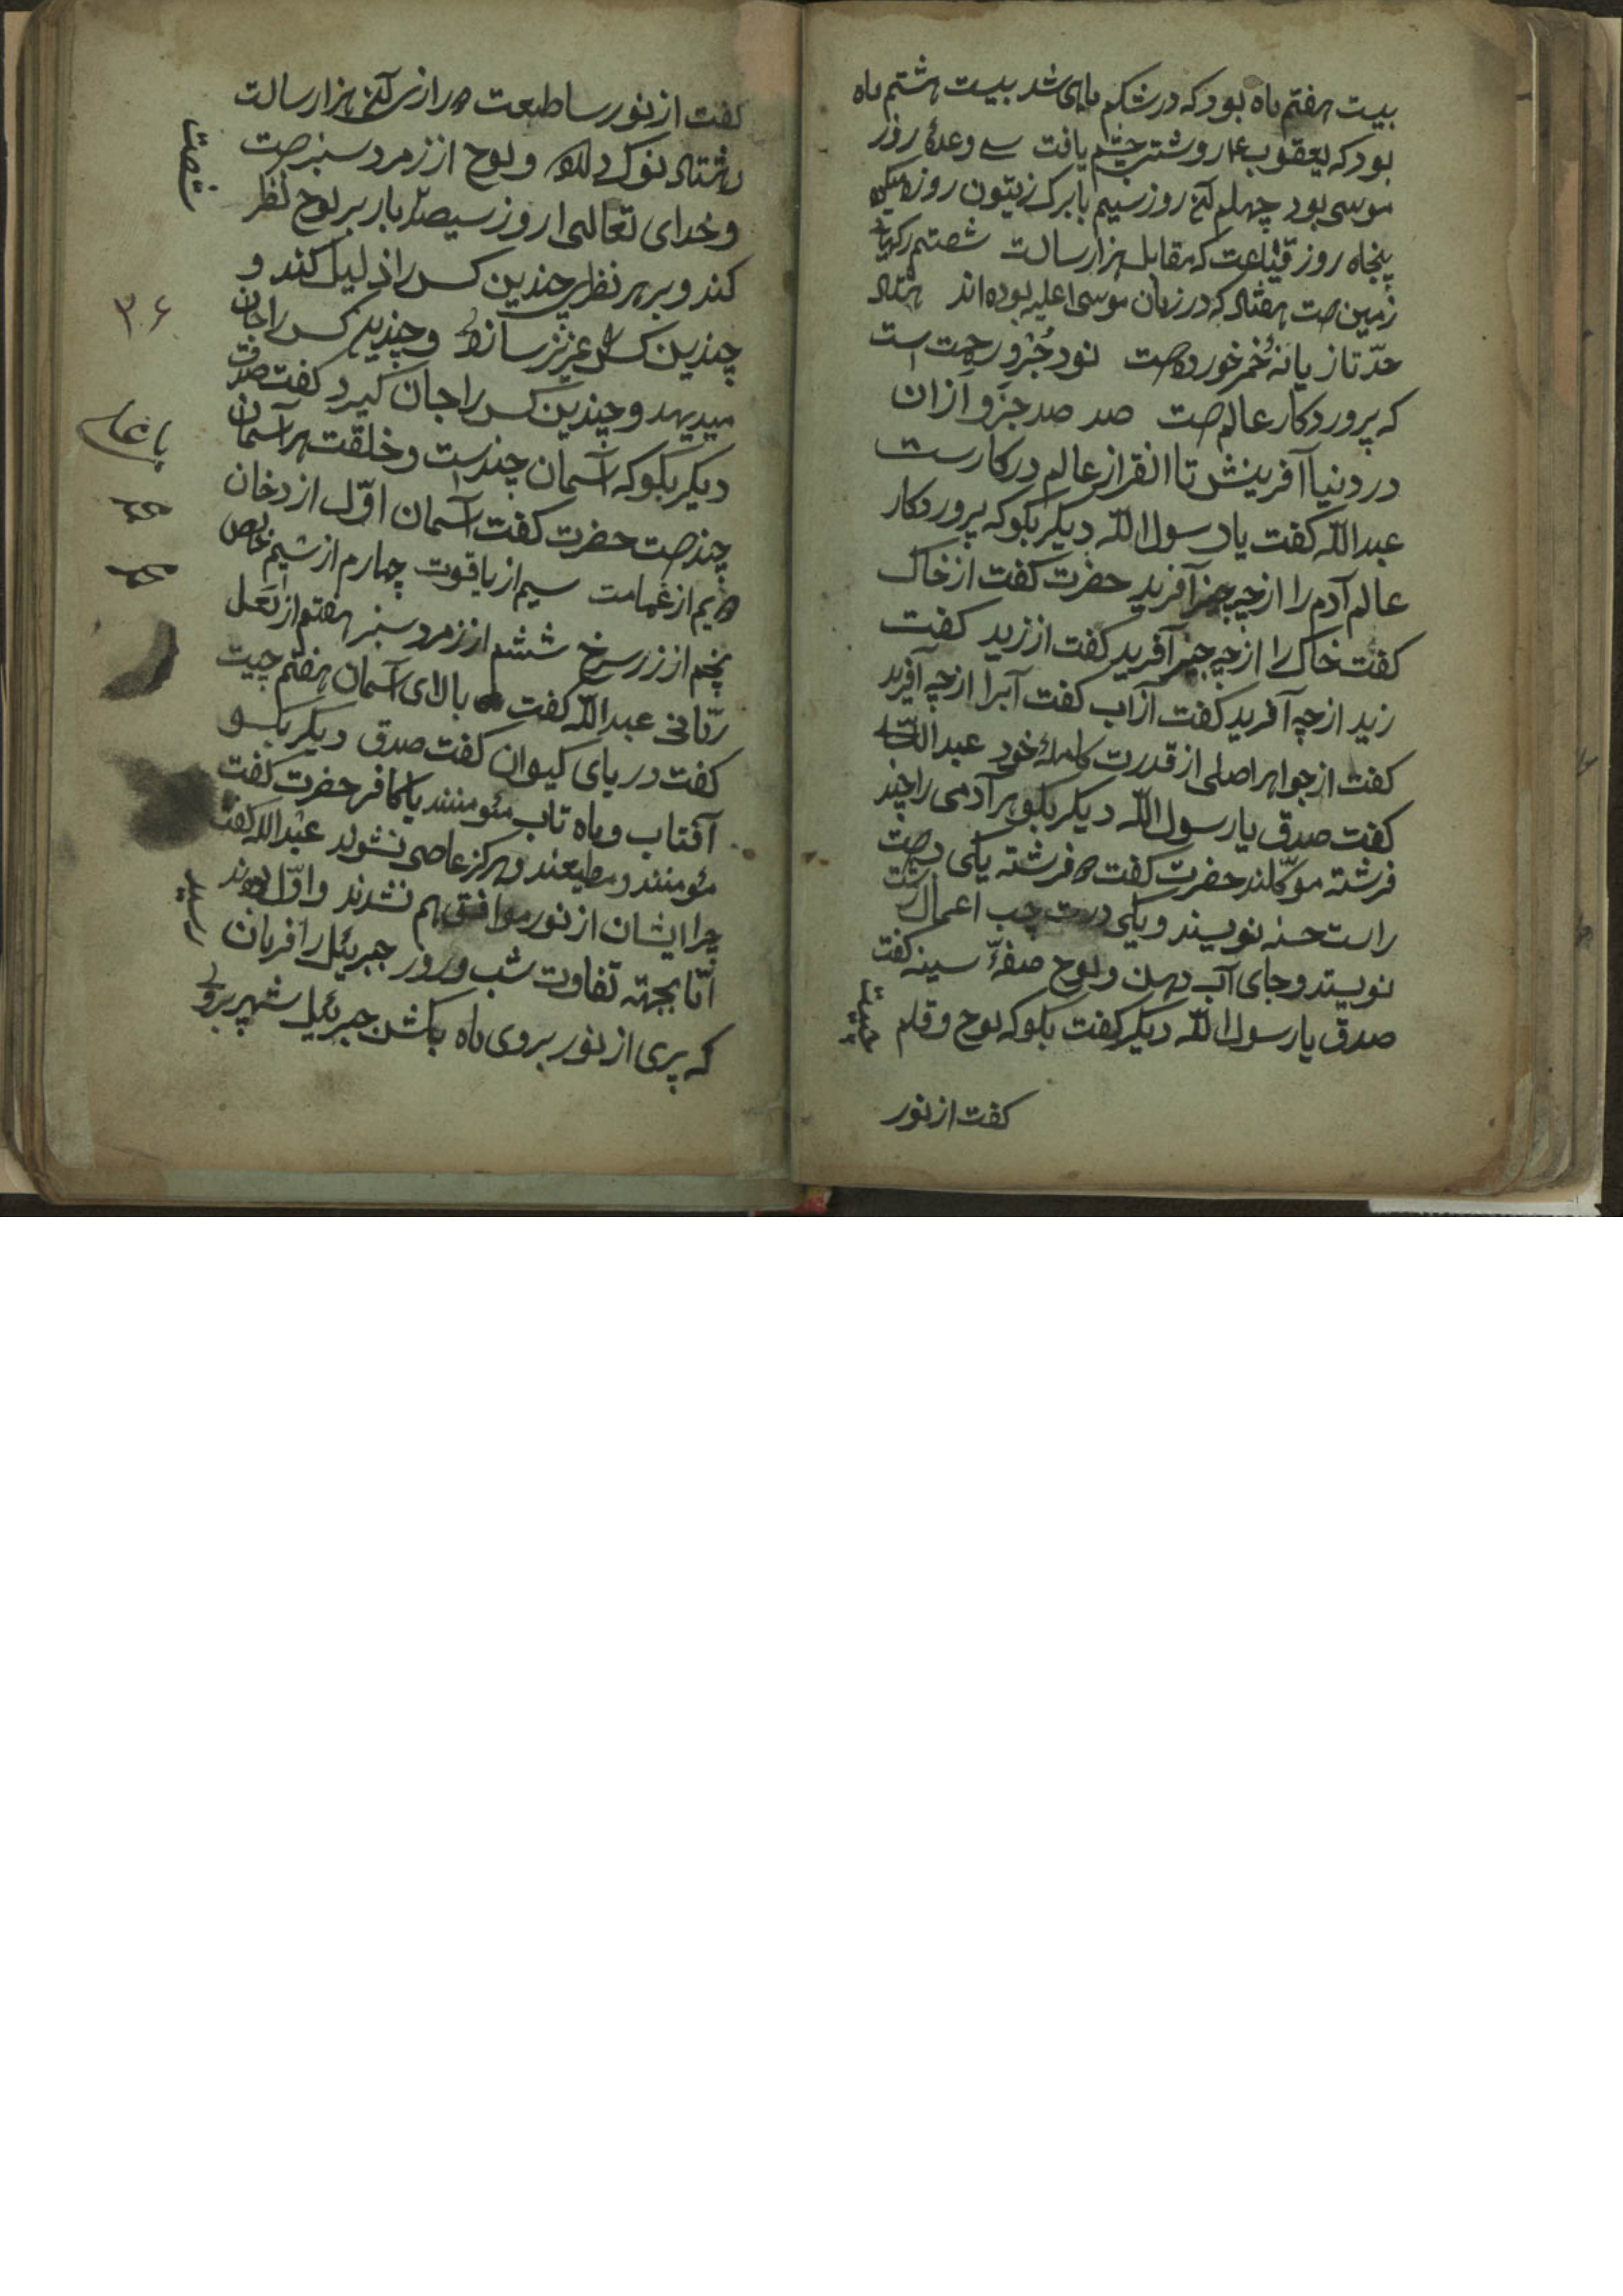 بیست هفتم ماه بود که در شکم ماهی شد بیست هشتم ماه
بود که یعقوب عم روشنی چشم یافت سی وعدهٔ روز
موسی بود چهلم آنک روز سیم با برک زیتون روزه
پنجاه روز قیامت که مقابل هزار سالست شصتم رکهای
زمین است هفتاد که در زمان موسی علیه بوده اند هشتاد
حدّ تازیانهٔ خمر خورده است نود جُزو رحمت است
که پروردکار عالم است صد صد جزو از آن
در دنیا آفرینش تا انقراز عالم در کارست
عبدالله کفت یا رسول الله دیکر بکو که پروردکار
عالم آدم را از چه چیز آفرید حضرت کفت از خاک
کفت خاک را از چه چیز آفرید کفت از زبد کفت
زبد از چه آفرید کفت از آب کفت آبرا از چه آفرید
کفت از جواهر اصلی از قدرت کاملهٔ خود عبدالله
کفت صدق یا رسول الله دیکر بکو هر آدمی را چند
فرشته موکّلند حضرت کفت دو فرشته یکی دست
راست حسنه نویسند و یکی دست چپ اعمال زشت
نویسند و جای آب دهان و لوح صفهٔ سینه کفت
صدق یا رسول الله دیکر کفت بکو که لوح و قلم چیست
کفت از نور
کفت از نور ساطعست درازی آنک هزار سالست
هشتاد نوک دارد و لوح از زمرد سبز است
و خدای تعالی هر روز سیصد بار بر لوح نظر
کند و بر هر نظر چندین کس را ذلیل کند و
چندین کس عزیز ساند و چندین کس را جان
میدهد و چندین کس را جان کیرد کفت صدقت
دیکر بکو که آسمان چندست و خلقت هر آسمان
چند است حضرت کفت آسمان اوّل از دخان
دویم از غمامت سیم از یاقوت چهارم از سیم خالص
پنجم از زر سرخ ششم از زمرد سبز هفتم از لعل
ربّانی عبدالله کفت بالای آسمان هفتم چیست
کفت دریای کیوان کفت صدق دیکر بکو
آفتاب و ماه تاب مئومنند یا کافر حضرت کفت
مئومنند و مطیعند و هرکز عاصی نشوند عبدالله کفت
چرا ایشان از نور موافق هم نشدند و اوّل بودند
امّا بجهته تفاوت شب و روز جبرئیل را فرمان رسید
که پری از نور بروی ماه بکش جبرئیل شهپر بروی
۳۶